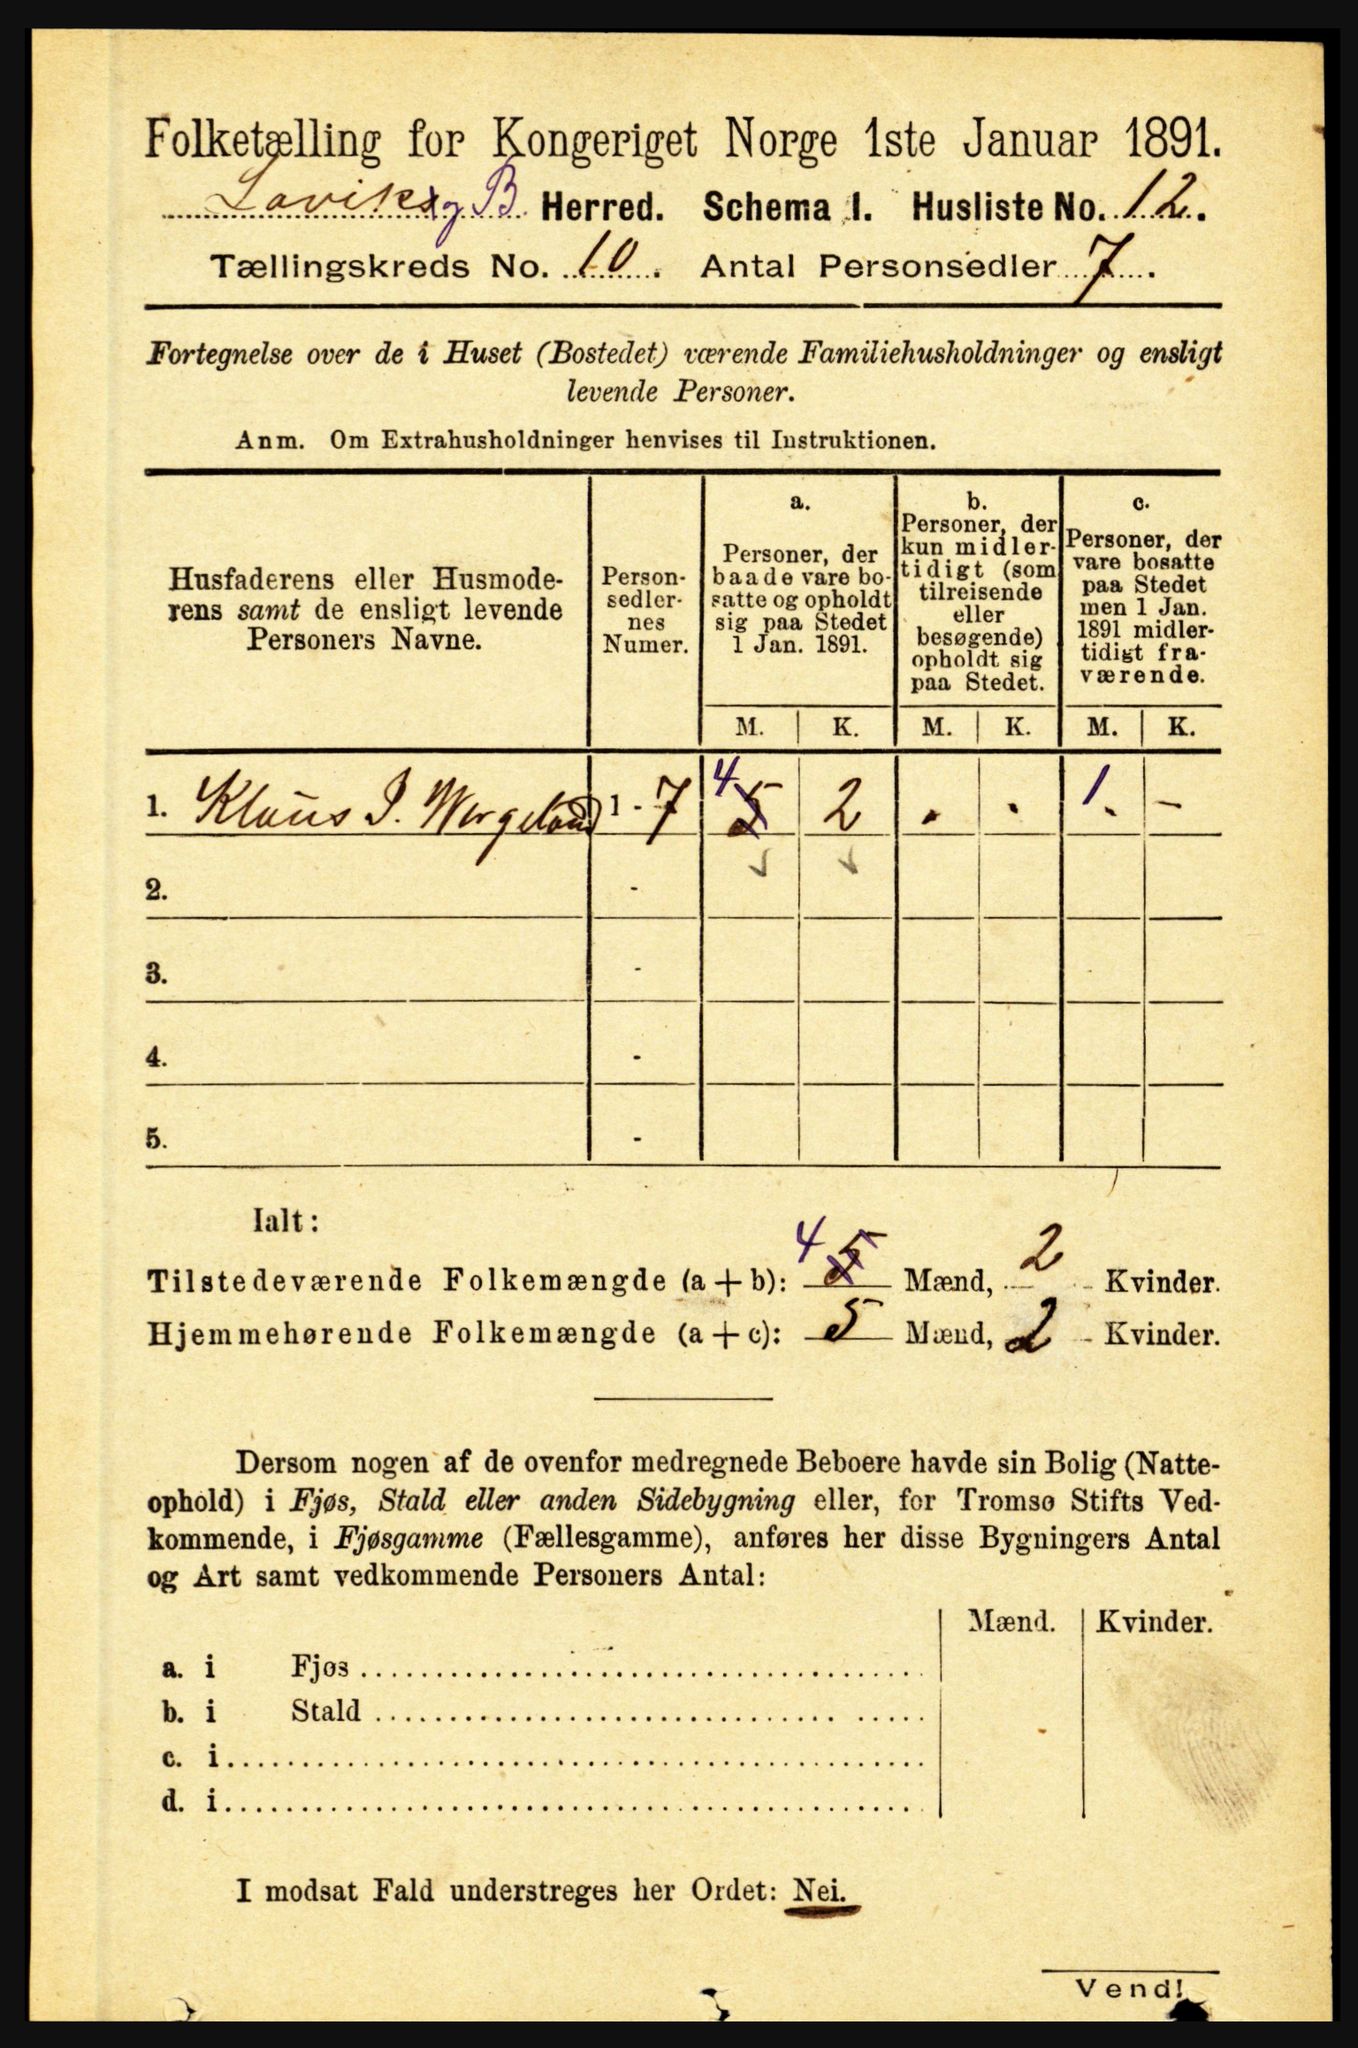 Folketælling for Kongeriget Norge 1ste Januar 1891.
Lavik og B. Herred. Schema I. Husliste No. 12.
Tællingskreds No. 10. Antal Personsedler 7.
Fortegnelse over de i Huset (Bostedet) værende Familiehusholdninger og ensligt
levende Personer.
Anm. Om Extrahusholdninger henvises til Instruktionen.
Husfaderens eller Husmode-
rens samt de ensligt levende
Personers Navne.
Person-
sedler-
nes
Numer.
a.
Personer, der
baade vare bo-
satte og opholdt
sig paa Stedet
1 Jan. 1891.
b.
Personer, der
kun midler-
tidigt (som
tilreisende
eller
besøgende)
opholdt sig
paa Stedet.
c.
Personer, der
vare bosatte
paa Stedet
men 1 Jan.
1891 midler-
tidigt fra-
værende.
M. K. M. K. M. K.
1. Klaus I. Wergeland 1 - 7 4 5 2 . . 1. –
2. -
3. -
4. -
5. -
Ialt:
Tilstedeværende Folkemængde (a + b): 4 5 Mænd, 2 Kvinder.
Hjemmehørende Folkemængde (a + c): 5 Mænd, 2 Kvinder.
Dersom nogen af de ovenfor medregnede Beboere havde sin Bolig (Natte-
ophold) i Fjøs, Stald eller anden Sidebygning eller, for Tromsø Stifts Ved-
kommende, i Fjøsgamme (Fællesgamme), anføres her disse Bygningers Antal
og Art samt vedkommende Personers Antal:
Mænd. Kvinder.
a. i Fjøs
b. i Stald
c. i
d. i
I modsat Fald understreges her Ordet: Nei.
Vend!